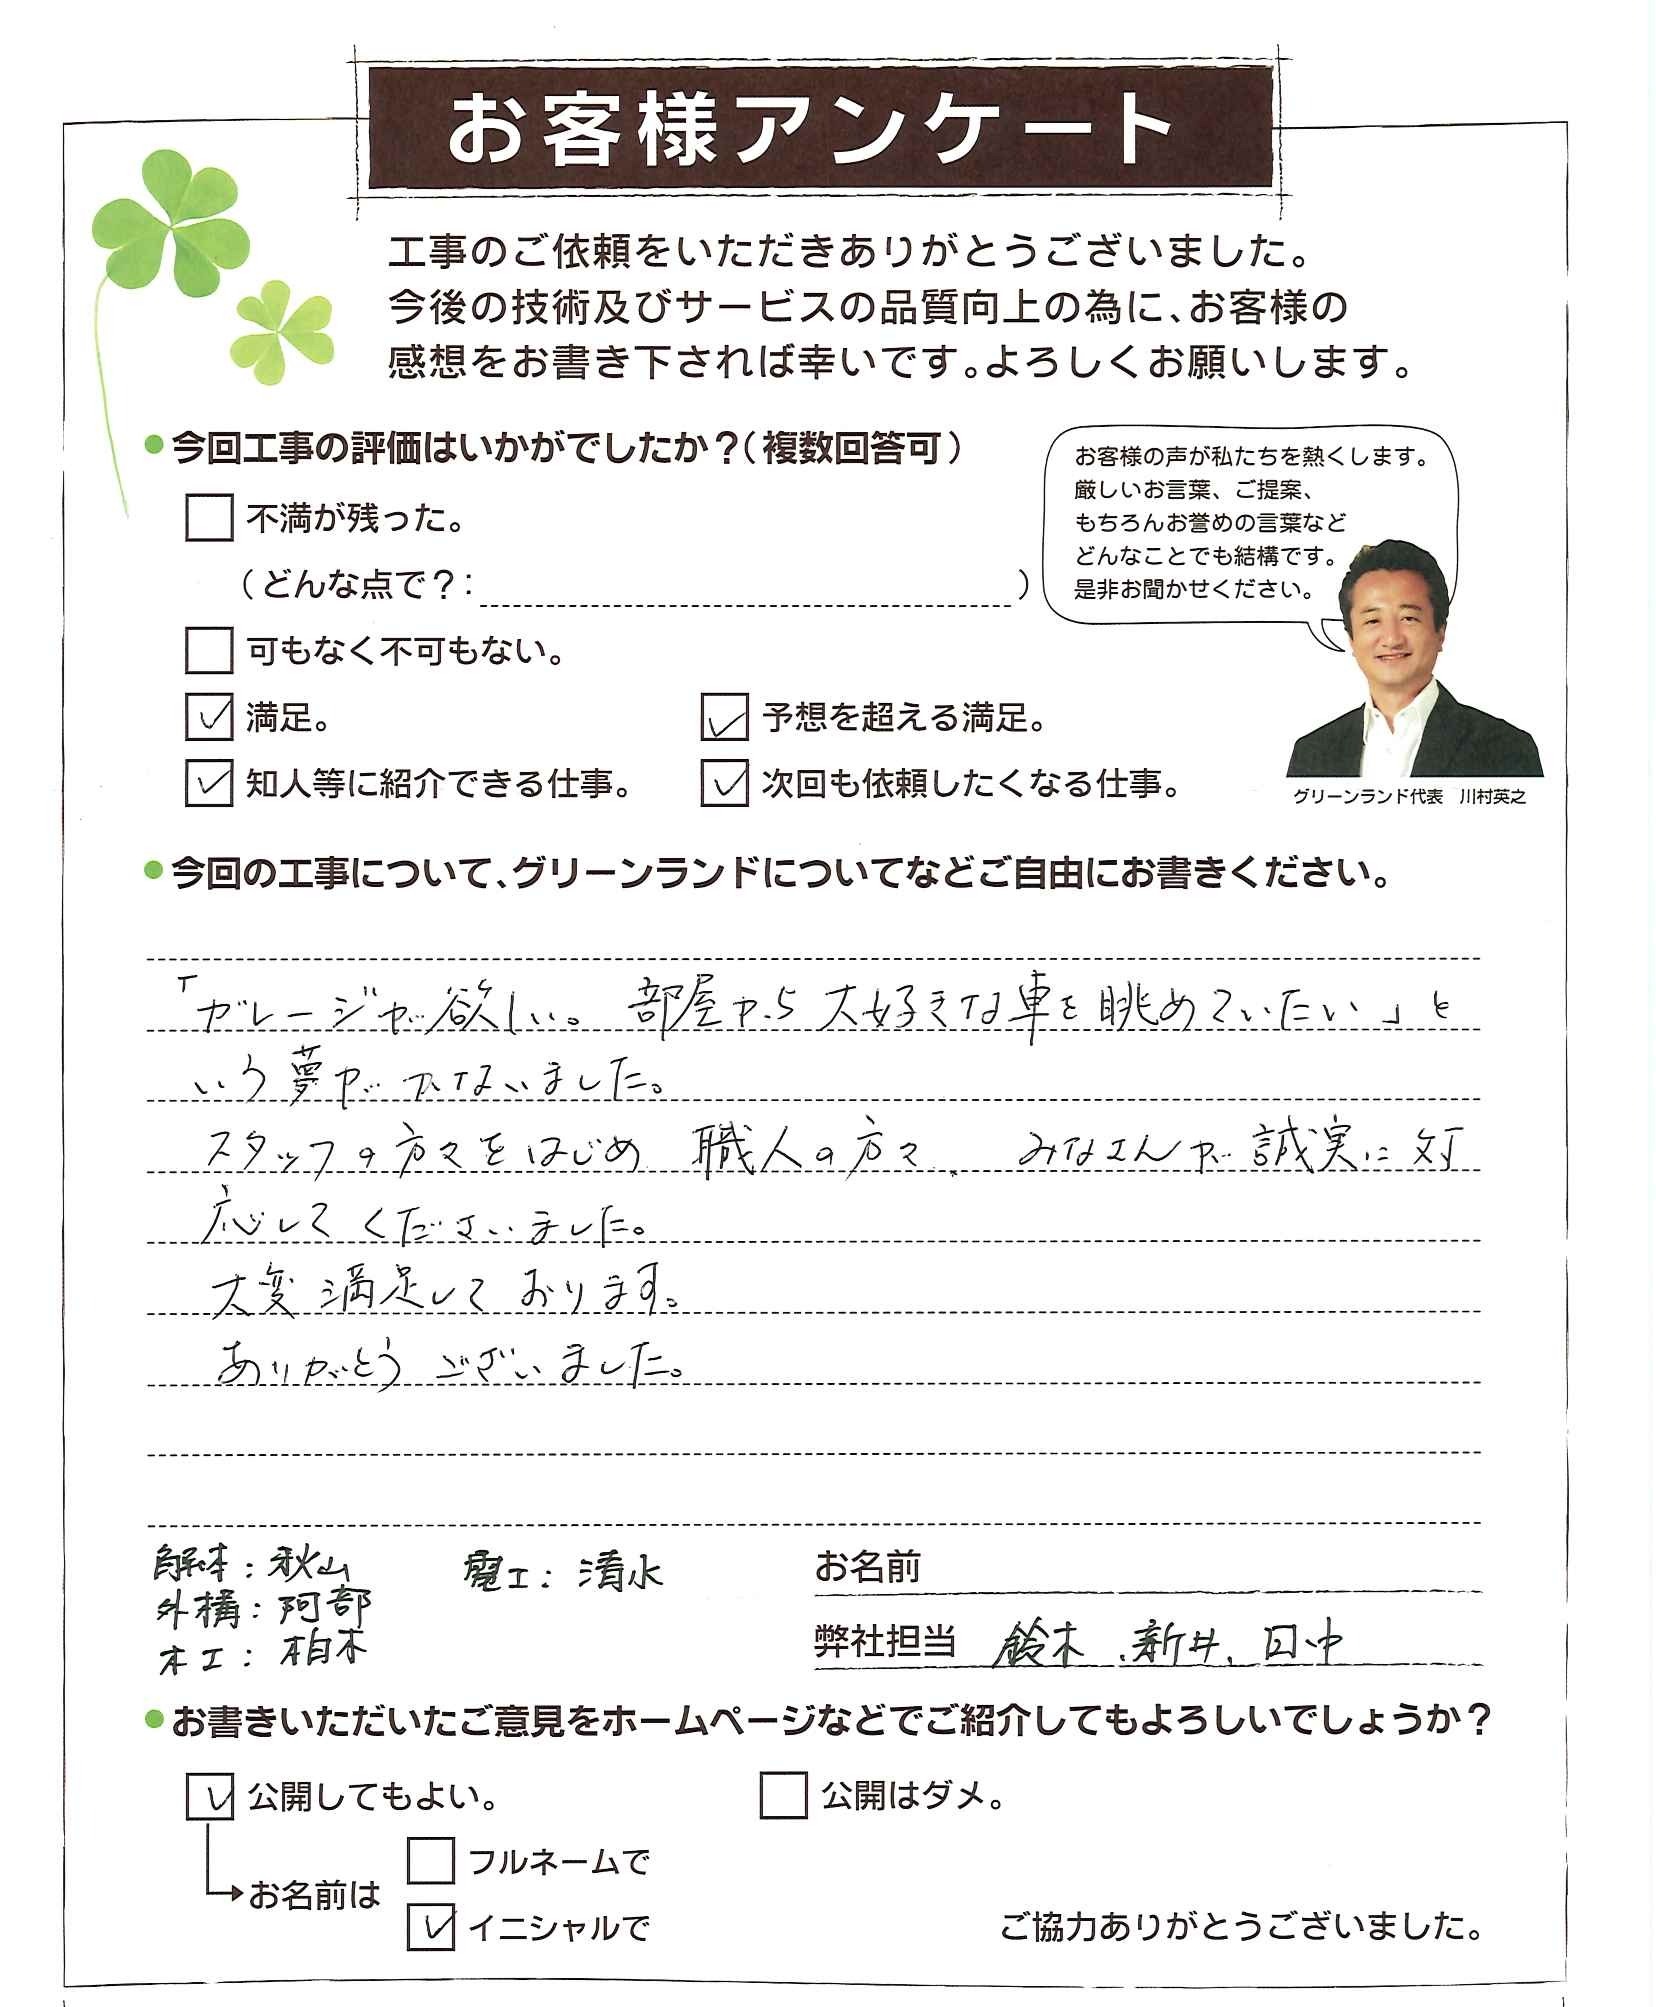 お客様アンケート
工事のご依頼をいただきありがとうございました。
今後の技術及びサービスの品質向上の為に、お客様の
感想をお書き下されば幸いです。よろしくお願いします。
●今回工事の評価はいかがでしたか?(複数回答可)
不満が残った。
(どんな点で?: )
可もなく不可もない。
満足。
予想を超える満足。
知人等に紹介できる仕事。
次回も依頼したくなる仕事。
お客様の声が私たちを熱くします。
厳しいお言葉、ご提案、
もちろんお誉めの言葉など
どんなことでも結構です。
是非お聞かせください。
グリーンランド代表 川村英之
●今回の工事について、グリーンランドについてなどご自由にお書きください。
「ガレージが欲しい。部屋から大好きな車を眺めていたい」と
いう夢がかないました。
スタッフの方々をはじめ 職人の方々、みなさんが誠実に対
応してくださいました。
大変満足しております。
ありがとうございました。
解体:秋山
電工:清水
外構:阿部
木工:柏木
お名前
弊社担当 鈴木、新井、田中
●お書きいただいたご意見をホームページなどでご紹介してもよろしいでしょうか?
公開してもよい。
公開はダメ。
お名前は
フルネームで
イニシャルで
ご協力ありがとうございました。